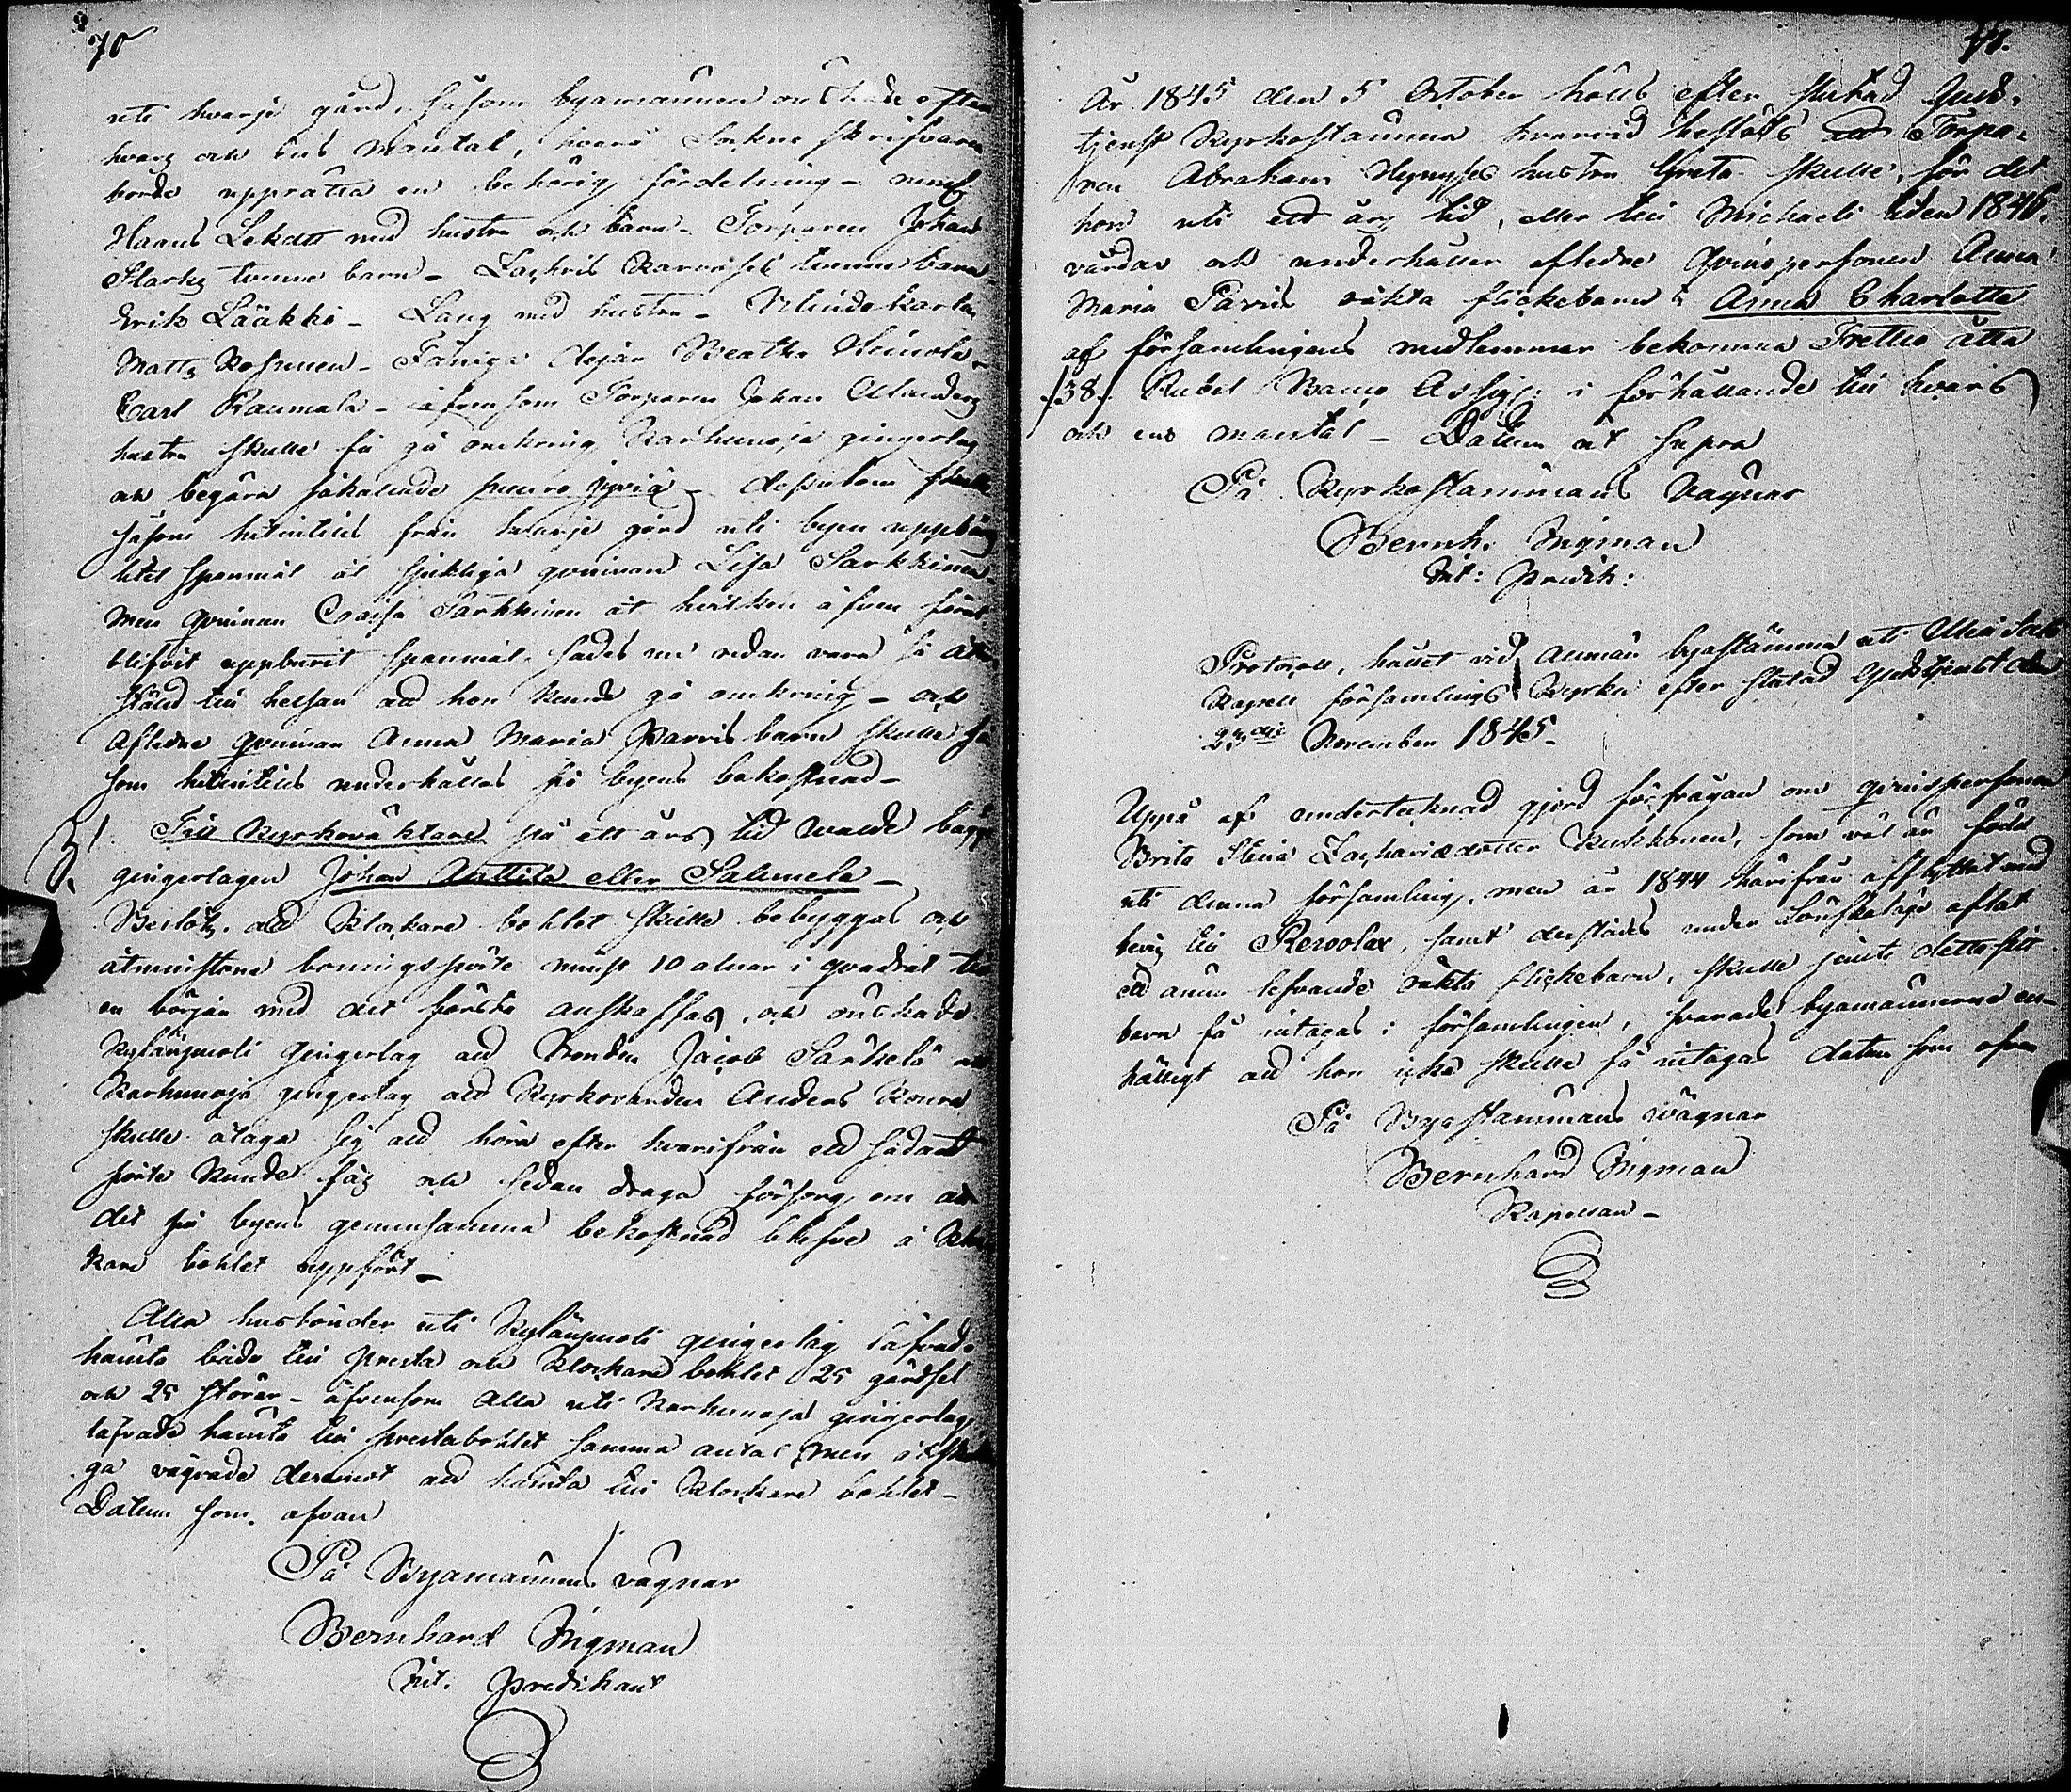 70
uti hvarje gård, såsom byamännen önskade efter
hvarz och ens Mantal, hvarå Sockne skrifvaren
borde upprätta en behörig fördelning – neml
Haans Lekatt med hustru och barn – Torparen Johan
Starkz tvenne barn – Zachris Karvoises tvenne barn
Erik Lääkkö – Lang med hustru – Blinde karlen
Matts Rosunen – Fånige dejan Beatha Heinola
Carl Raumala – äfvensom Torparen Johan Ulanders
hustru skulle få gå omkring Karhunoja gingerlag
och begära såkallade puuro jyviä – dessutom skulle
såsom hitintills från hvarje gård uti byen uppbäras
litet spanmål åt sjukliga qvinnan Lisa Sarkkinen
men qvinnan Caisa Sarkkinen åt hvilken äfven förut
blifvit uppburit spanmål, sades nu redan vara så åter
ställd till helsan att hon kunde gå omkring – och
Aflidne qvinnan Anna Maria Parvis barn skulle så
som hitintills underhållas på byens bekostnad –
Till Kyrkoväktare på ett års tid valde begge
gingerlagen Johan Anttila eller Salmela –
Beslöts, att Klockare bohlet skulle bebyggas och
åtminstone boningspörte minst 10 alnar i qvadrat till
en början med det första anskaffas, och önskade
Kylänpuoli Gingerlag att Bonden Jacob Särkelä och
Karhunoja gingerlag att Kyrkovärden Anders
skulle åtaga sig att höra efter hvarifrån ett sådant
pörte kunde fås och sedan draga försorg om att
det på byens gemensamma bekostnad blefve å Kloc
kare bohlet uppfört –
Alla husbönder uti Kylänpuoli gingerlag låfvade
hämta både till Presta och Klockare bohlet 25 gärdsel
och 25 störar – äfvensom Alla uti Karhunoja gingerlag
låfvade hämta till prestabohlet samma antal, men
ga vägrade deremot att hämta till Klockare bohlet –
Datum som ofvan
På Byamännens vägnar
Bernhard Ingman
Int. Predikant
71.
År 1845 den 5 October hölls efter slutad Guds-
tjenst Kyrkostämma hvarvid beslöts att Torpa-
ren Abraham hustru Greta skulle, för det
hon uti ett års tid, eller till Michaeli tiden 1846,
vårdar och underhåller aflidne Qvinspersonen Anna
Maria Parvis oäkta flickebarn Anna Charlotta
af församlingens medlemmar bekomma Trettio åtta
/38/ Rubel Banco Assign: i förhållande till hvars
och ens mantal – Datum ut supra
På Kyrkostämmans vägnar
Bernh. Ingman
Int: Predik:
Protocoll, hållet vid Allmän byastämma uti
Kapell församlings Kyrka efter slutad Gudstjenst den
23die November 1845 –
Uppå af undertecknad gjord förfrågan om qvinspersonen
Brita Stina Zachariædotter Kukkonen, som väl är född
uti denna församling, men år 1844 härifrån afflyttat med
bevis till Revolax, samt derstädes under Löuskaläge aflat
ett ännu lefvande oäkta flickebarn, skulle jemte detta sitt
barn få intagas i församlingen, svarade byamännerne en-
hälligt att hon icke skulle få intagas datum som ofvan
På Byastämmans vägnar
Bernhard Ingman
Kapellan –